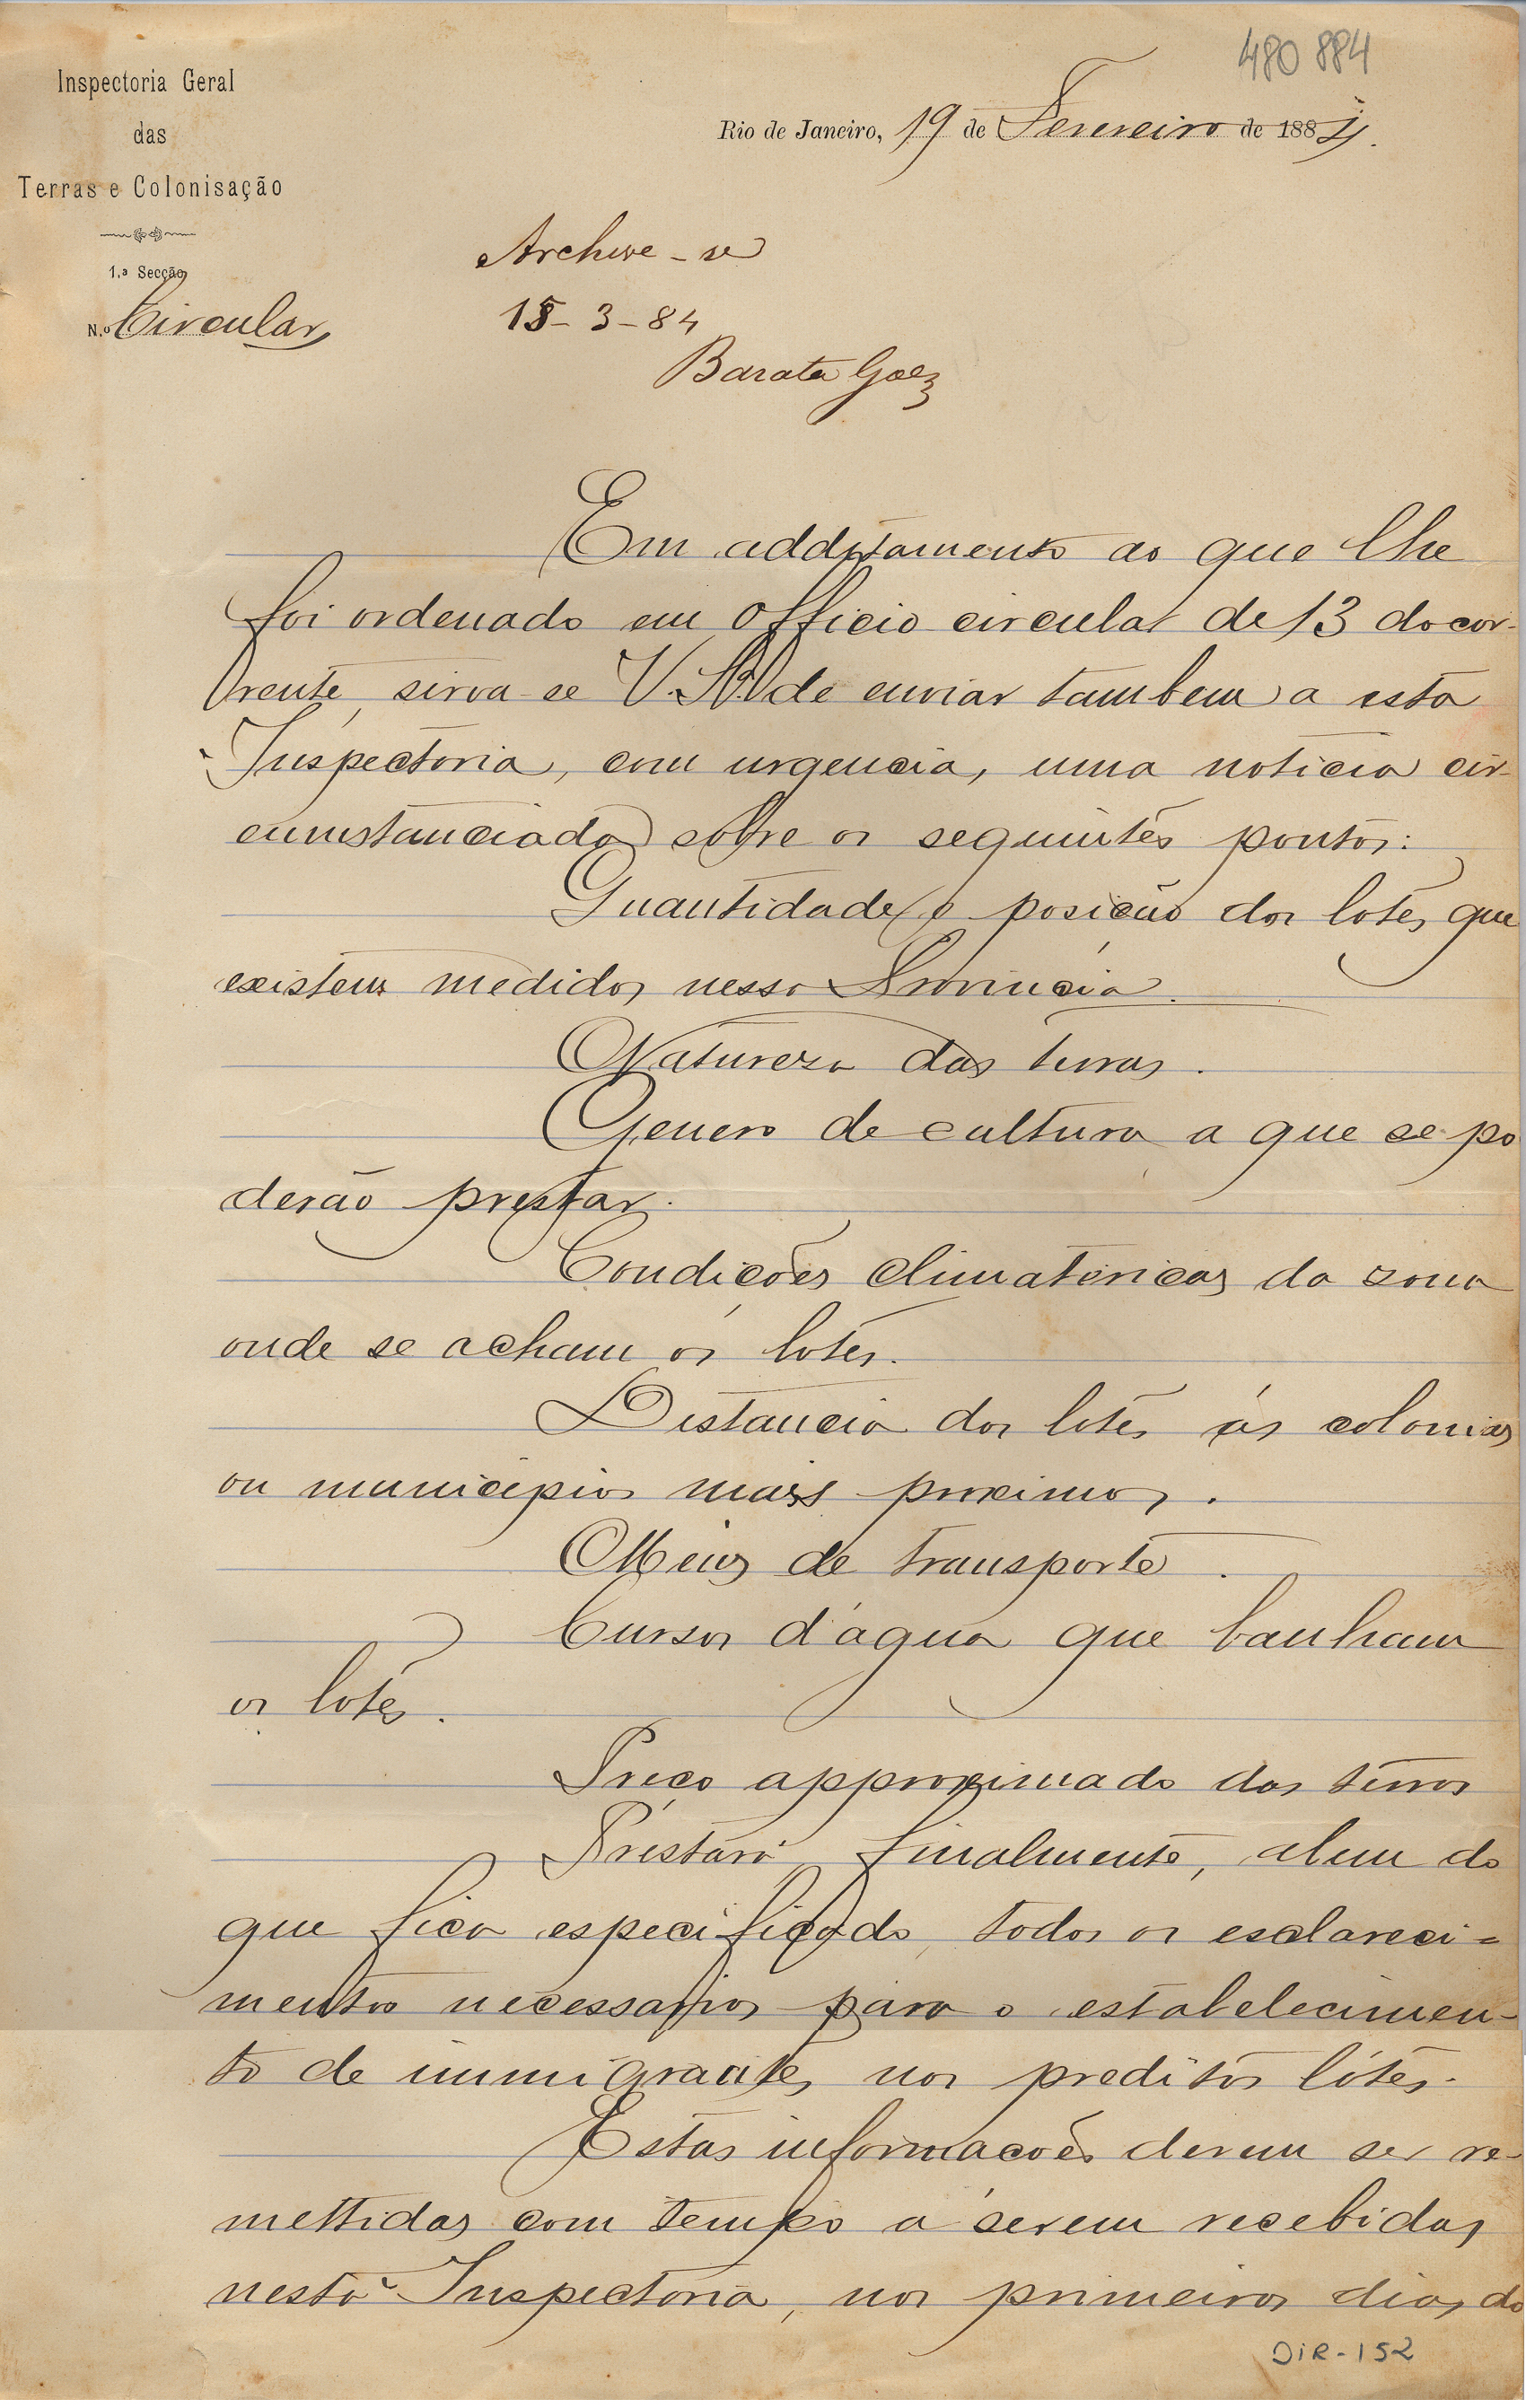 480 884
Inspectoria Geral
das
Terras e Colonisação
1.ª Secção
N.º Circular
Rio de Janeiro, 19 de Fevereiro de 1884.
Archive-se
15-3-84
Barata Góes
Em additamento ao que lhe
foi ordenado em officio circular de 13 do cor-
rente, sirva-se V. S. de enviar tambem a esta
Inspectoria, com urgencia, uma noticia cir-
cumstanciada sobre os seguintes pontos:
Quantidade e posição dos lotes que
existem medidos nessa Provincia.
Natureza das terras.
Genero de cultura a que se po
derão prestar.
Condições climatericas da zona
onde se acham os lotes.
Distancia dos lotes ás colonias
ou municipios mais proximos.
Meios de transporte.
Cursos d'agua que banham
os lotes.
Preço approximado das terras
Prestará finalmente, alem do
que fica especificado, todos os esclareci=
mentos necessarios para o estabelecimen-
to de immigrantes nos preditos lótes.
Estas informações devem ser re-
mettidas com tempo a serem recebidas
nesta Inspectoria, nos primeiros dias do
DIR-152